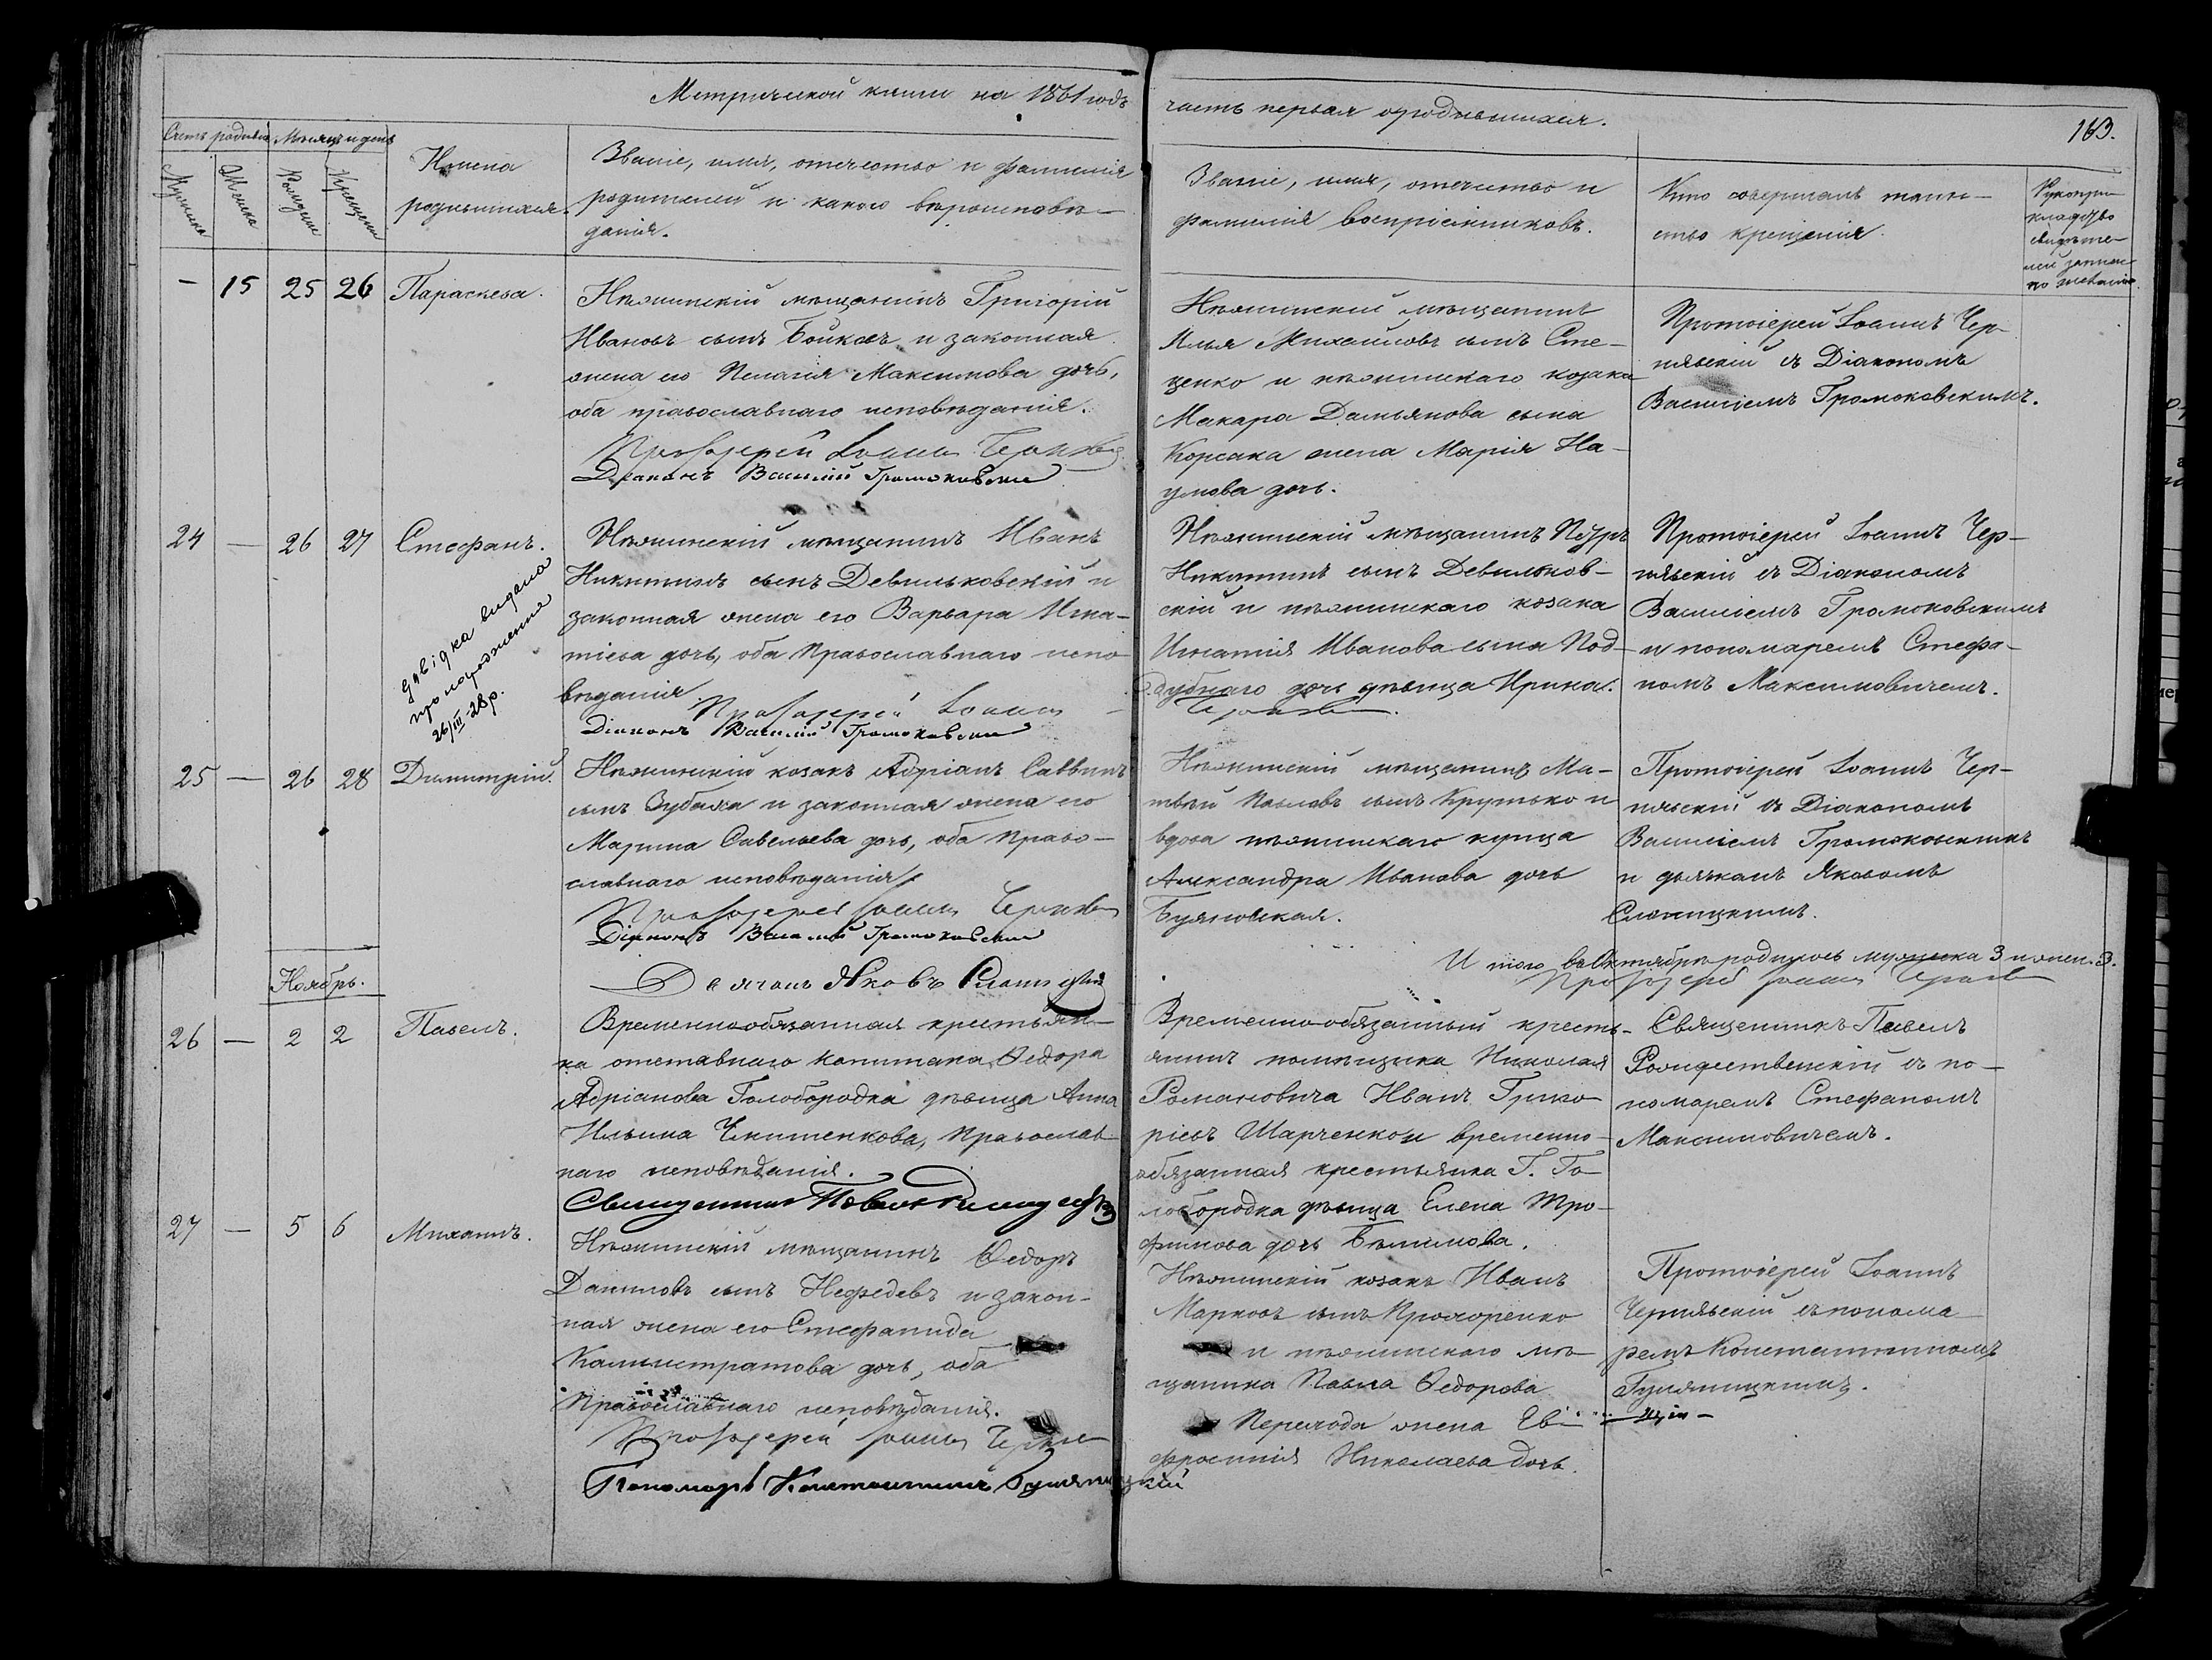 Метрической книги на 1861 годъ
часть первая о родившихся.
163.
Счетъ родивш.
Мѣсяцъ и день
Мужеска
Женска
Рожденія
Крещенія
Имена
родившихся.
Званіе, имя, отечество и фамилія
родителей и какого вѣроисповѣ-
данія.
Званіе, имя, отечество и
фамилія воспріемниковъ.
Кто совершалъ таин-
ство крещенія.
Рукопри-
кладство
свидѣте-
лей записи
по желанію
– 15 25 26 Параскева.
Нѣжинскій мѣщанинъ Григорій
Ивановъ сынъ Бойко и законная
жена его Пелагія Максимова дочь,
оба православнаго исповѣданія.
Протоіерей Іоаннъ
Діаконъ Василій Громоковскій
Нѣжинскій мѣщанинъ
Илья Михайловъ сынъ Сте-
ценко и нѣжинскаго козака
Макара Дамьянова сына
Корсака жена Марія На-
умова дочь.
Протоіерей Іоаннъ Чер-
нявскій съ Діакономъ
Василіемъ Громоковскимъ.
24 – 26 27 Стефанъ.
Довідка видана
про народження
26/III 28 р.
Нѣжинскій мѣщанинъ Иванъ
Никитинъ сынъ Девильковскій и
законная жена его Варвара Игна-
тіева дочь, оба Православнаго испо-
вѣданія.
Протоіерей Іоаннъ
Діаконъ Василій Громоковскій
Нѣжинскій мѣщанинъ Петръ
Никитинъ сынъ Девильков-
скій и нѣжинскаго козака
Игнатія Иванова сына Под-
дубнаго дочь дѣвица Ирина.
Протоіерей Іоаннъ Чер-
нявскій съ Діакономъ
Василіемъ Громоковскимъ
и пономаремъ Стефа-
номъ Максимовичемъ.
25 – 26 28 Димитрій.
Нѣжинскій козакъ Адріанъ Саввинъ
сынъ Зубаха и законная жена его
Марина Савельева дочь, оба Право-
славнаго исповѣданія.
Протоіерей Іоаннъ
Діаконъ Василій Громоковскій
Дьячокъ Яковъ Слоницкій
Нѣжинскій мѣщанинъ Ма-
твѣй Павловъ сынъ Крутько и
вдова нѣжинскаго купца
Александра Иванова дочь
Буяновская.
Протоіерей Іоаннъ Чер-
нявскій съ Діакономъ
Василіемъ Громоковскимъ
и дьячкомъ Яковомъ
Слоницкимъ.
И того въ Октябрѣ родилось мужеска 3 и женс. 3.
Протоіерей Іоаннъ
Ноябрь.
26 – 2 2 Павелъ.
Временно-обязанная крестьян-
ка отставнаго капитана Ѳедора
Адріанова Голобородка дѣвица Анна
Ильина Чкитенкова, Православ-
наго исповѣданія.
Священникъ Павелъ
Временно-обязанный кресть-
янинъ помѣщика Николая
Романовича Иванъ Григо-
ріевъ Шарченко и временно-
обязанная крестьянка Г. Го-
лобородка дѣвица Елена Тро-
фимова дочь Бѣлимова.
Священникъ Павелъ
Рождественскій съ по-
номаремъ Стефаномъ
Максимовичемъ.
27 – 5 6 Михаилъ.
Нѣжинскій мѣщанинъ Ѳедоръ
Даниловъ сынъ Нефедевъ и закон-
ная жена его Стефанида
Калистратова дочь, оба
Православнаго исповѣданія.
Протоіерей Іоаннъ
Пономарь Константинъ Гуляницкій
Нѣжинскій козакъ Иванъ
Марковъ сынъ Прохоренко
и нѣжинскаго мѣ-
щанина Павла Ѳедорова
Перехода жена Ев-
фросинія Николаева дочь.
Протоіерей Іоаннъ
Чернявскій съ понома-
ремъ Константиномъ
Гуляницкимъ.